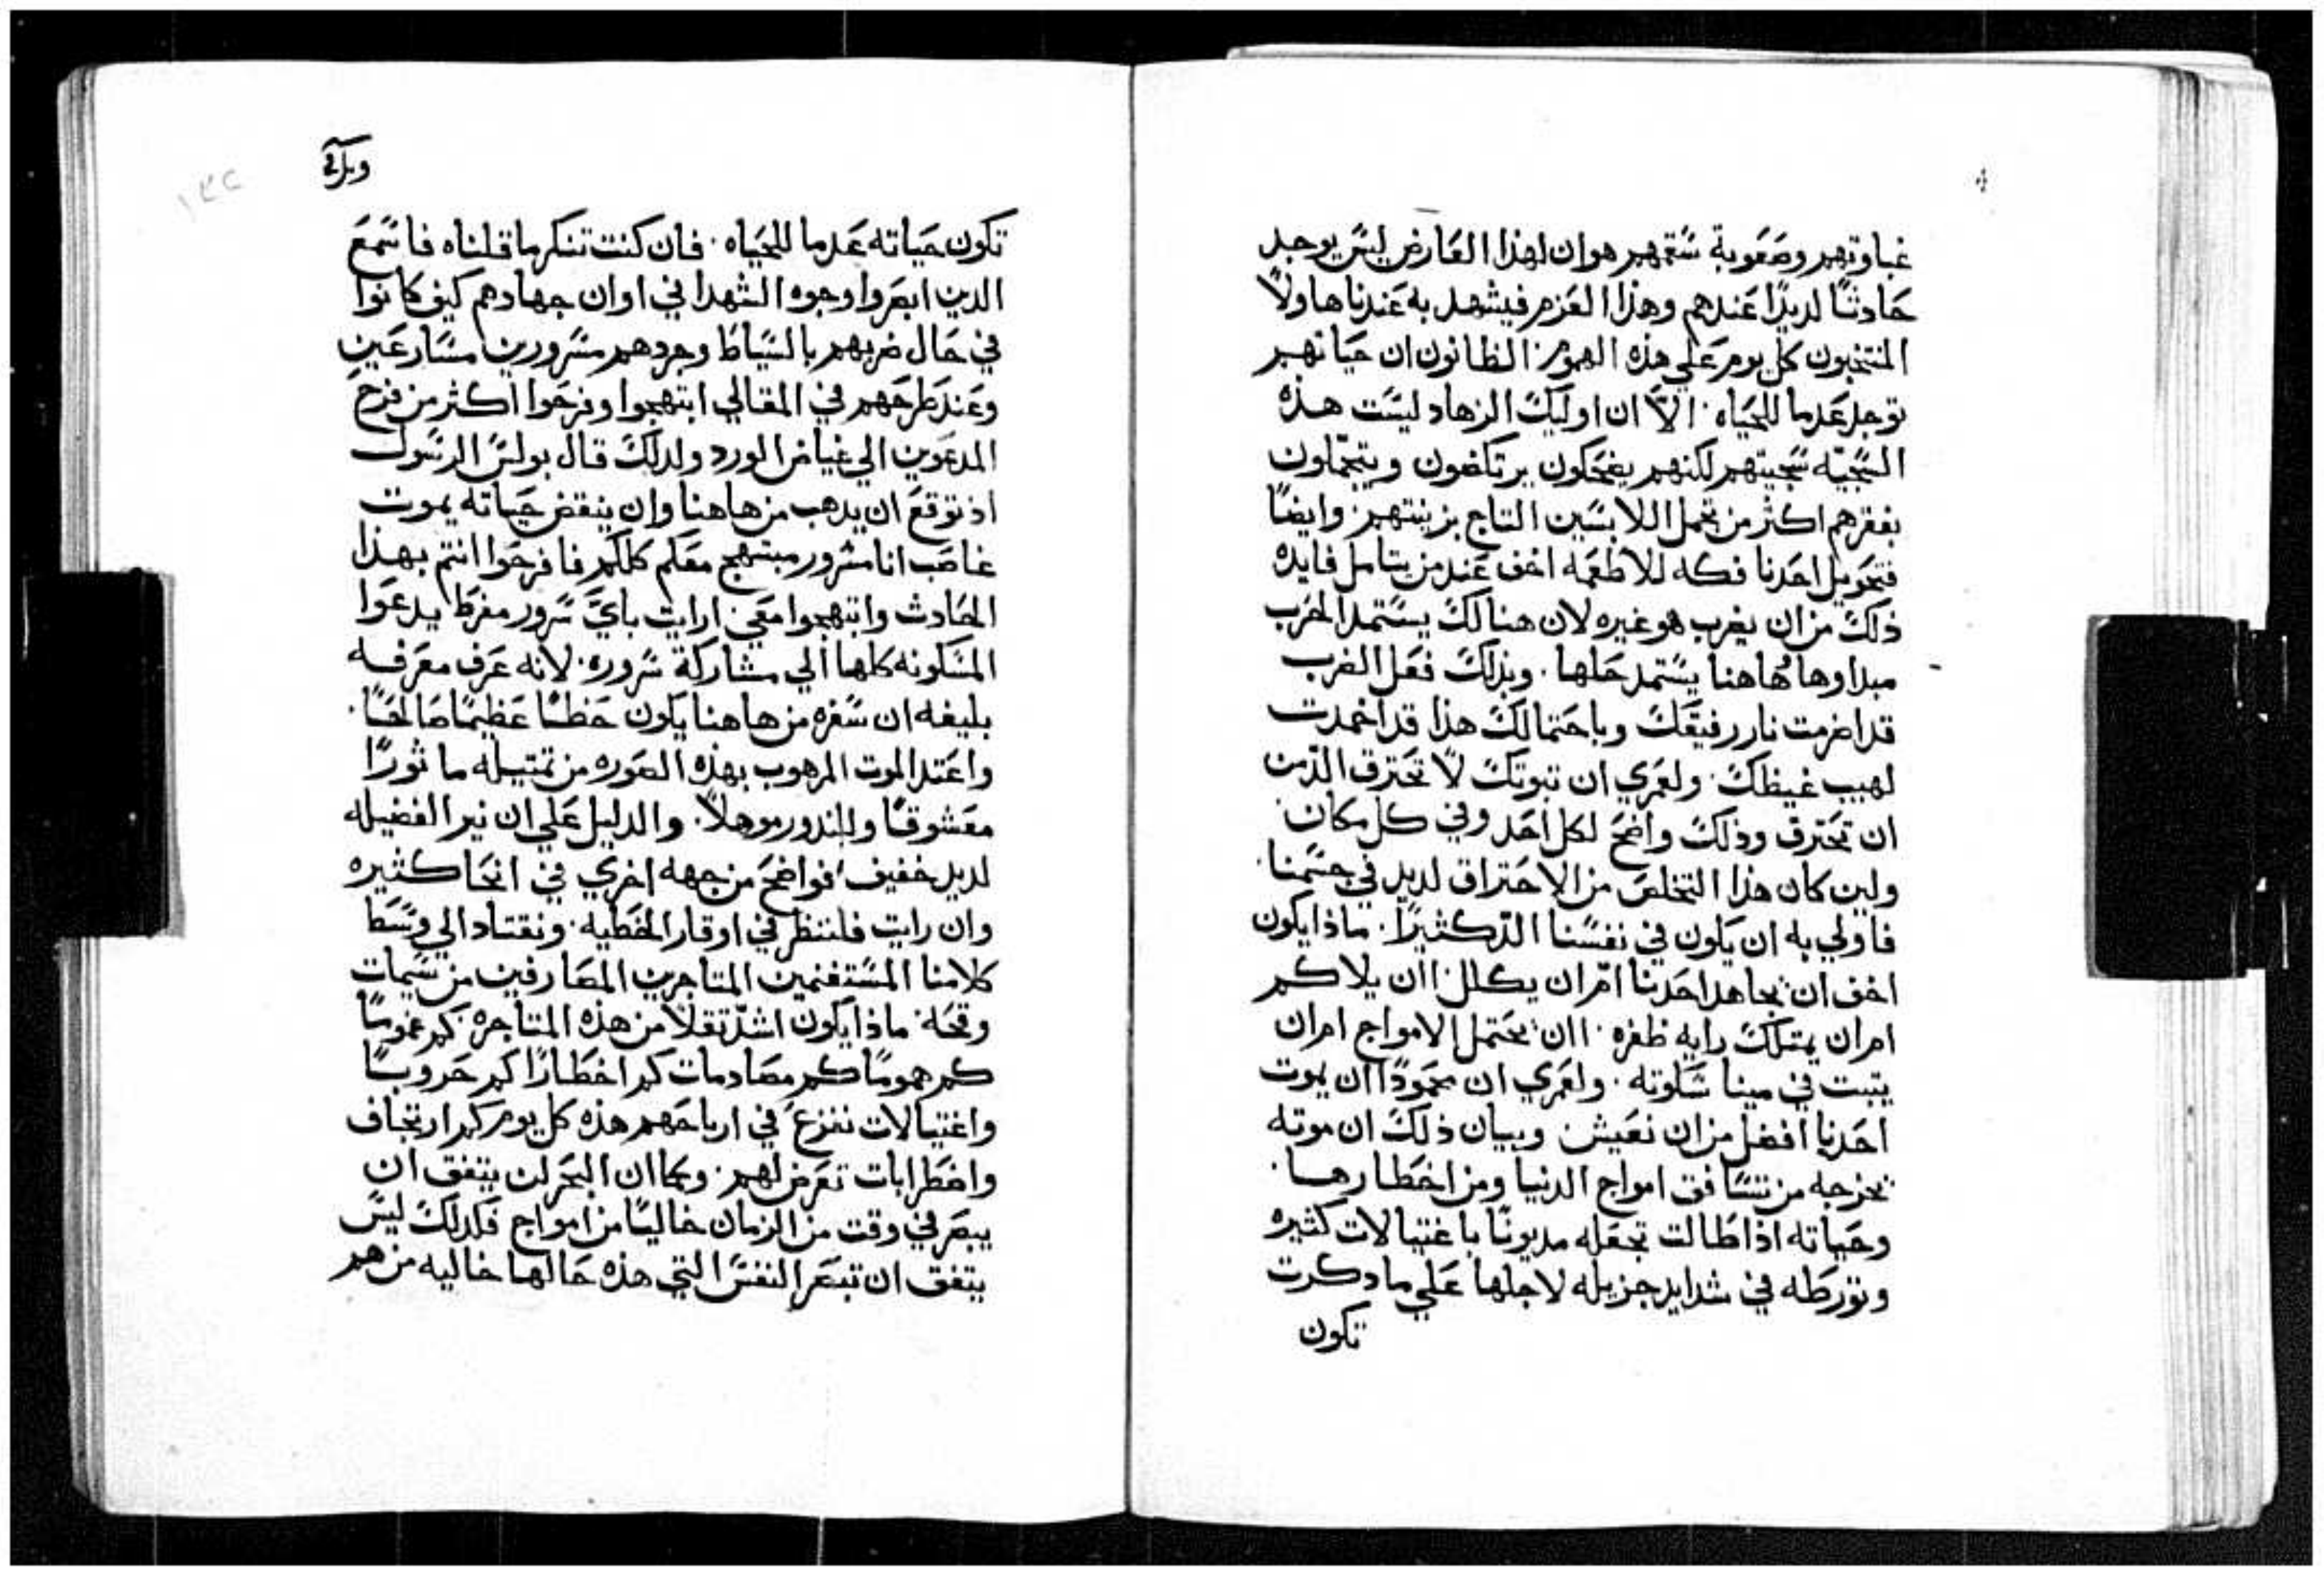 غباوتهم وصعوبة سقمهم هو ان لهذا العارض ليس يوجد
حادثًا لديدًا عندهم وهذا العزم فيشهد به عندنا هاولا
المنتخبون كل يوم علي هذه الهموم الظانون ان حياتهم
توجد عدما للحياه. الا ان اوليك الزهاد ليست هذه
السجيه سجيتهم لكنهم يضحكون يرتكضون ويتجملون
بفقرهم اكثر من تجمل اللابسين التاج بزينتهم. وايضًا
فتحويل احدنا فكه للاطمه اخف عند من يتامل فايدة
ذلك من ان يضرب هو غيره لان هنالك يستمد الحرب
مبداوها هاهنا يستمد حلها. وبذلك فعل الضرب
قد اضرمت نار رفيقك وباحتمالك هذا قد اخمدت
لهيب غيظك. ولعمري ان تبوتك لا تحترق الذ من
ان تحترق وذلك واضح لكل احد وفي كل مكان.
ولين كان هذا التخلص من الاحتراق لديد في جسمنا.
فاولي به ان يكون في نفسنا الذ كثيرًا. ماذا يكون
اخف ان يجاهد احدنا ام ان يكلل اان يلاكم
ام ان يمتلك راية ظفره. اان يحتمل الامواج ام ان
يتبت في مينا سكوته. ولعمري ان محمودًا ان يموت
احدنا افضل من ان نعيش وبيان ذلك ان موته
يخرجه من تسافق امواج الدنيا ومن اخطارها.
وحياته اذا طالت تجعله مديونًا باغتيالات كثيره
وتورطه في شدايد جزيله لاجلها علي ما دكرت
تكون
تكون حياته عدما للحياه. فان كنت تنكر ما قلناه فاسمع
الدين ابصروا وجوه الشهدا في اوان جهادهم كيف كانوا
في حال ضربهم بالسياط وجردهم مسرورين مسارعين
وعند طرحهم في المقالي ابتهجوا وفرحوا اكثر من فرح
المدعوين الي غياض الورد ولدلك قال بولس الرسول
اذ توقع ان يدهب من هاهنا وان ينقض حياته بموت
غاصب انا مسرور مبتهج معكم كلكم فافرحوا انتم بهذا
الحادث وابتهجوا معي ارايت باي سرور مفرط يدعوا
المسكونه كلها الي مشاركة سروره. لانه عرف معرفه
بليغه ان سفره من هاهنا يكون حظًا عظيمًا صالحًا.
واعتد الموت المرهوب بهذه الصوره من تمتيله ماثورًا
معشوقًا وللندور موهلا. والدليل علي ان نير الفضيله
لديد خفيف فواضح من جهه اخري في انحا كثيره
وان رايت فلننظر في اوقار الخطيه. ونقتاد الي وسط
كلامنا المستغنمين المتاجرين المصارفين من سيمات
وقحه. ماذا يكون اشد تقلا من هذه المتاجره كم غمومًا
كم همومًا كم مصادمات كم اخطارًا كم حروبًا
واغتيالات نفزع في ارباحهم هذه كل يوم كم ارتجاف
واضطرابات تعرض لهم. وكما ان البحر لن يتفق ان
يبصر في وقت من الزمان خاليًا من امواج فكدلك ليس
يتفق ان تبصر النفس التي هذه حالها خاليه من هم